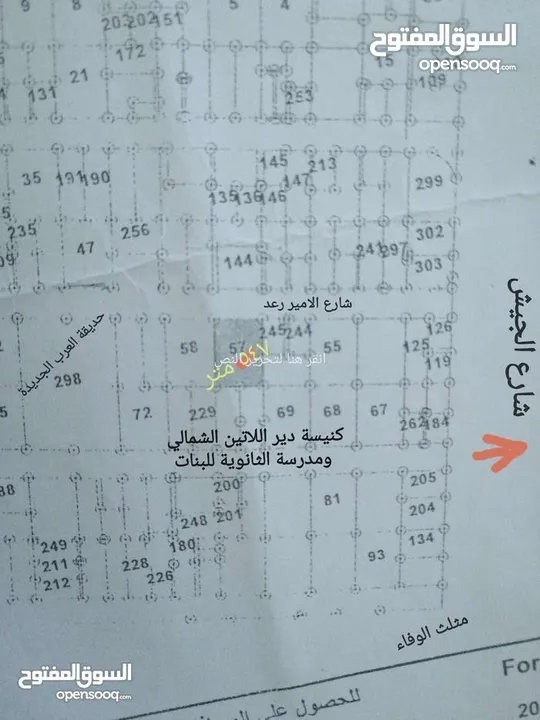 السوق المفتوح
opensooq.com
9 8 5 4
202 202 151
172
15
21
109
131
253
145 213
35 191 190 147 299
135 136 146
235 256 302
47 241 297
144 303
شارع الامير رعد
شارع الجيش
حديقة العرب الجديدة
245 244 126
58 57 55 125
انقر هنا لتحرير النص
٥٤٧ متر
119
298
72 229 69 68 67
262 184
كنيسة دير اللاتين الشمالي
ومدرسة الثانوية للبنات
88 200 205
81
248 201 204
249 180 134
211 228 93
212 226
مثلث الوفاء
السوق المفتوح
opensooq.com
للحصول على
For
20